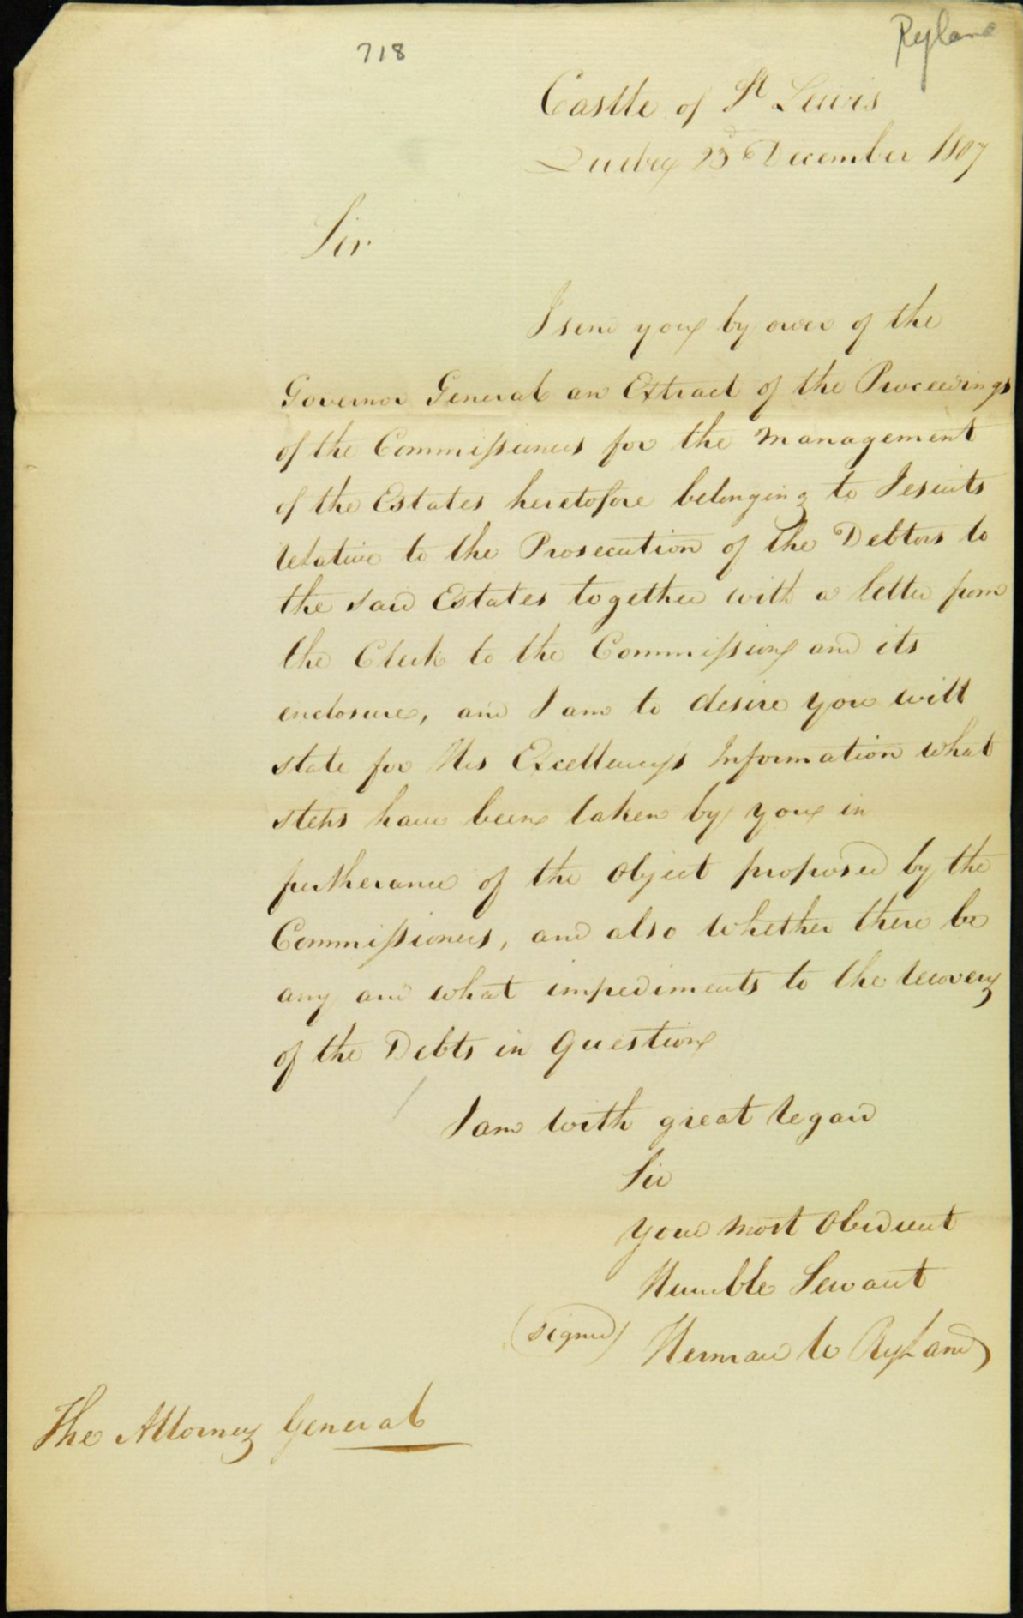 718
Ryland
Castle of St Lewis
Quebec 23d December 1807
Sir
I send you by order of the
Governor General an Extract of the Proceedings
of the Commissioners for the Management
of the Estates heretofore belonging to Jesuits
relative to the Prosecution of the Debtors to
the said Estates together with a letter from
the Clerk to the Commission and its
enclosure, and I am to desire you will
state for His Excellency's Information what
steps have been taken by you in
furtherance of the Object proposed by the
Commissioners, and also whether there be
any and what impediments to the recovery
of the Debts in Question
I am with great regard
Sir
your most Obedient
Humble Servant
(signed) Herman W Ryland
The Attorney General